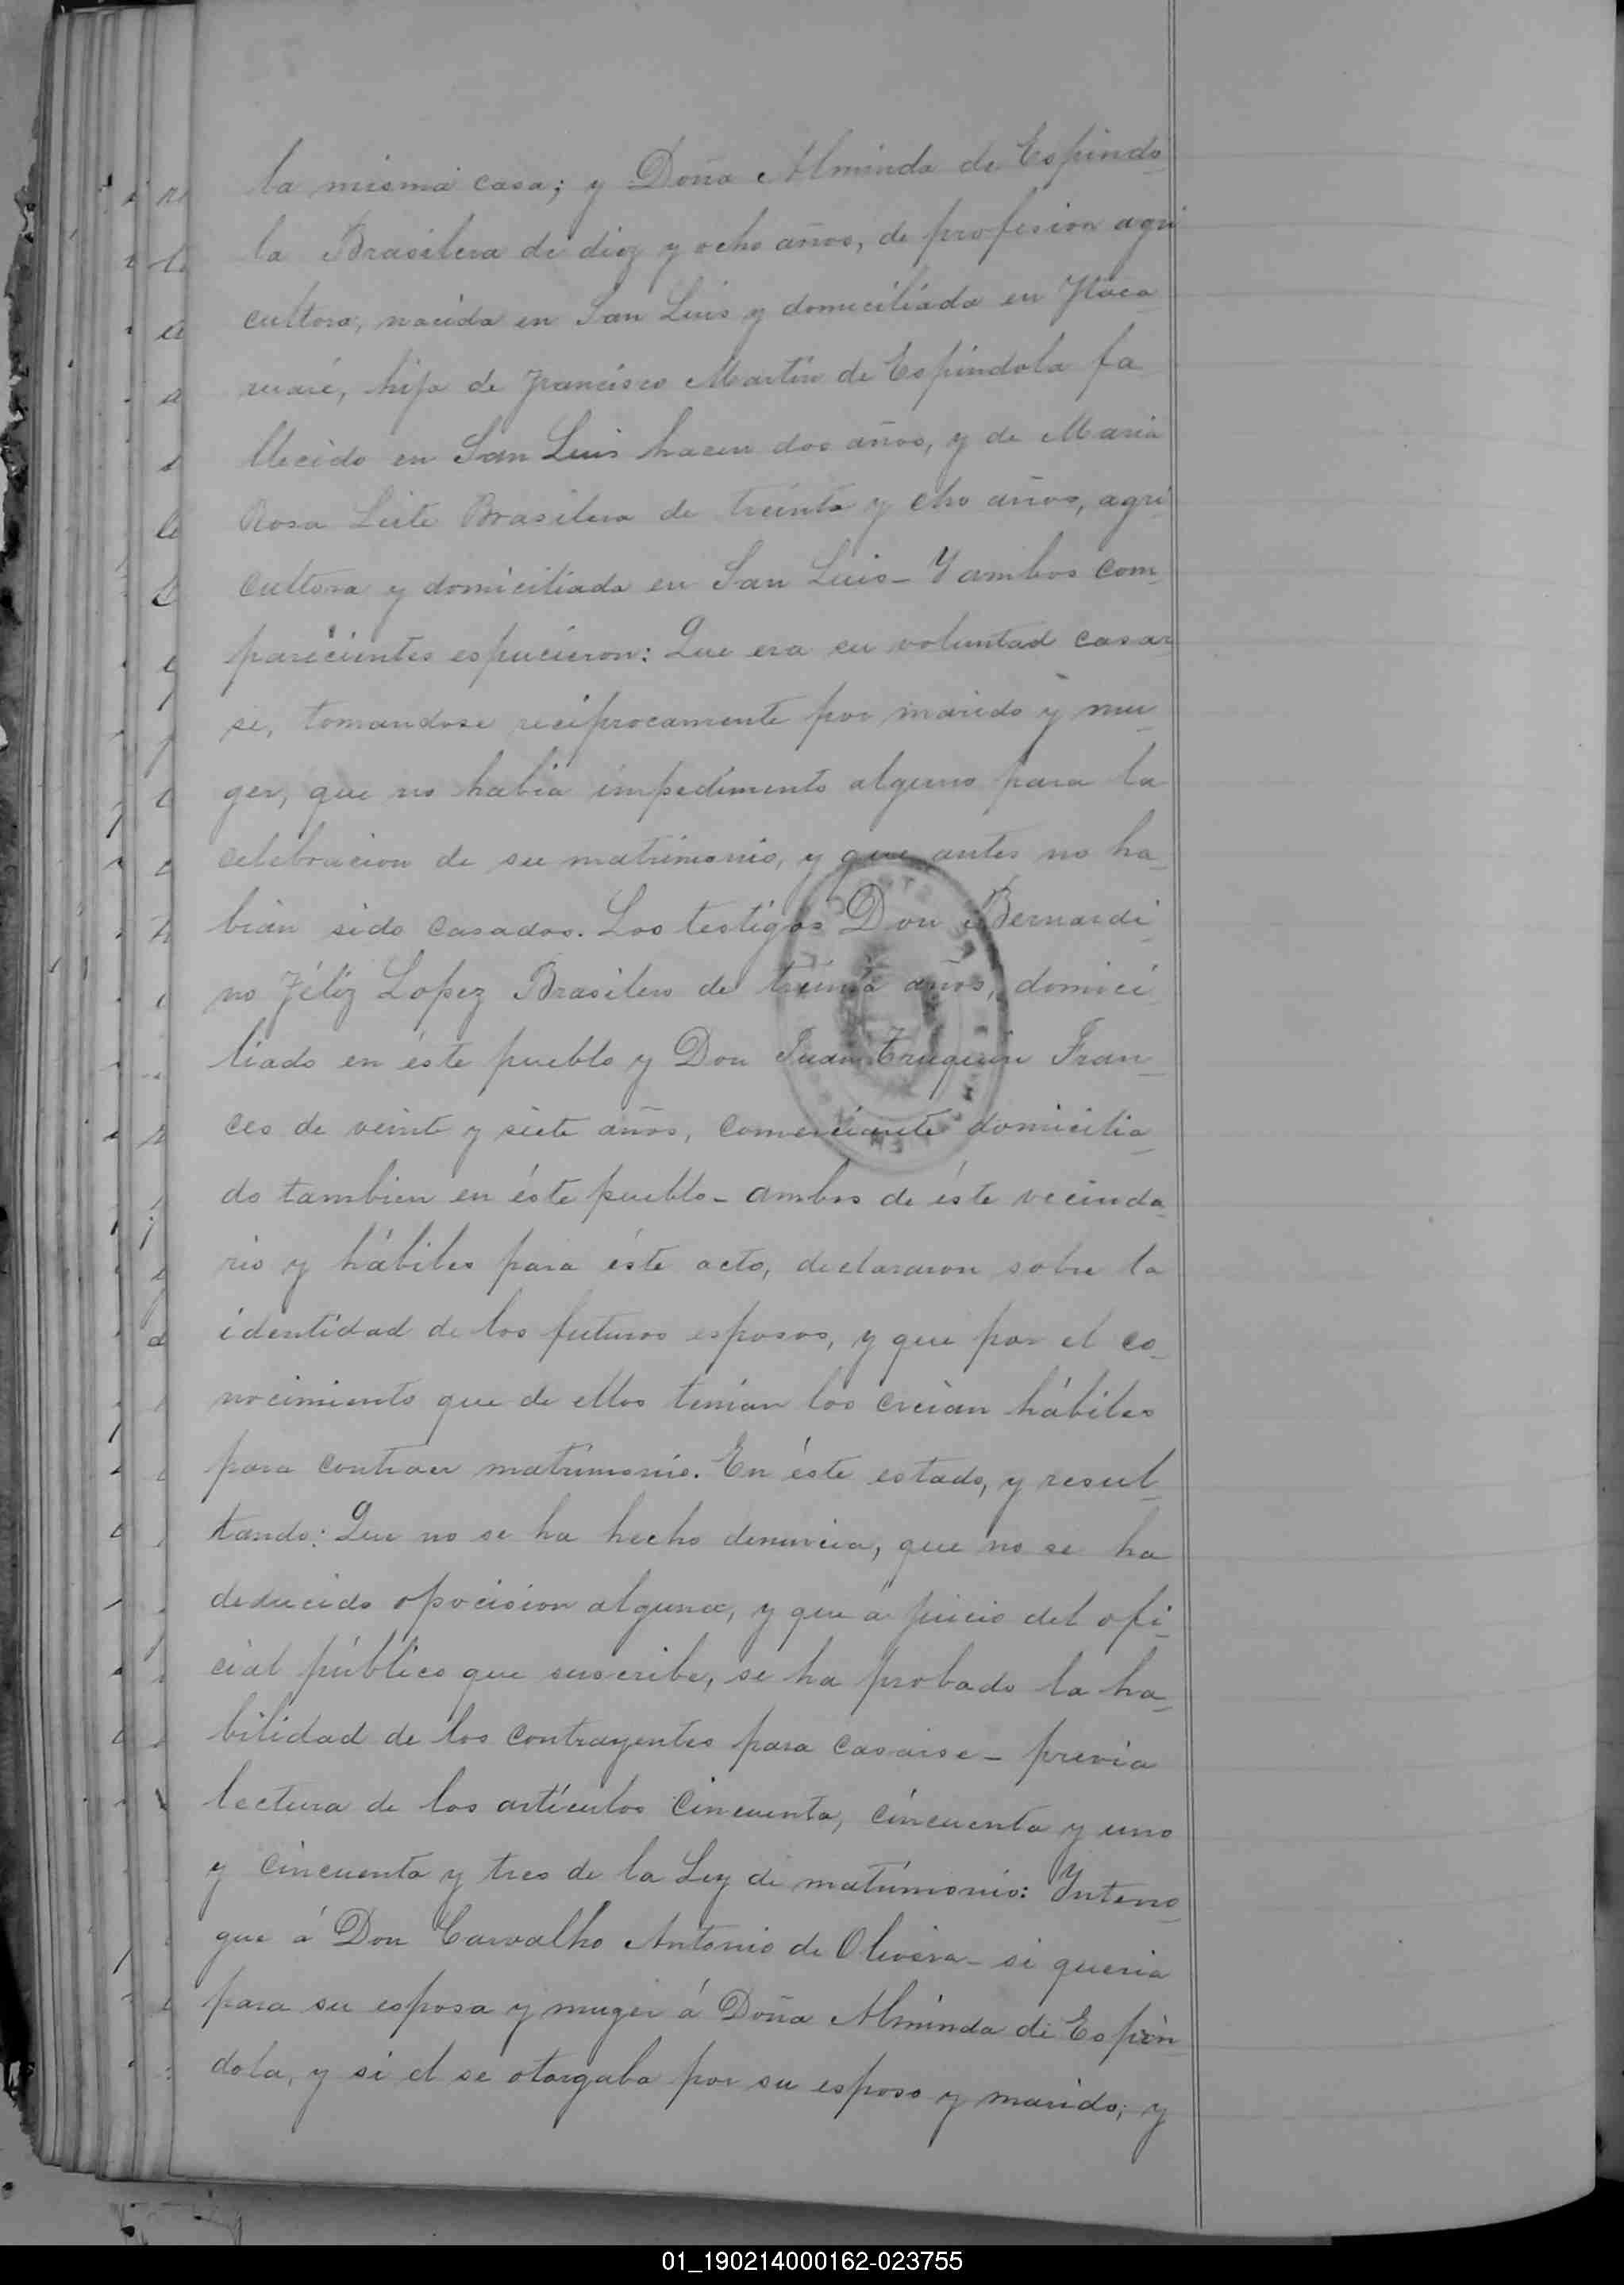 la misma casa; y Doña Alminda de Espindo
la Brasilera de diez y ocho años, de profesion agri
cultora, nacida en San Luis y domiciliada en Ytaca
ruaré, hija de Francisco Martin de Espindola fa
llecido en San Luis hacen dos años, y de Maria
Rosa Leite Brasilera de treinta y cho años, agri
cultora y domiciliada en San Luis_ Y ambos com_
parecientes espucieron: Que era su voluntad casar
se, tomandose reciprocamente por marido y mu_
ger, que no habia impedimento alguno para la
celebracion de su matrimonio, y que antes no ha_
bian sido casados. Los testigos Don Bernardi_
no Féliz Lopez Brasilero de treinta años, domici_
liado en éste pueblo y Don Juan Fran_
ces de veinte y siete años, comerciante domicilia_
do tambien en éste pueblo_ ambos de éste vecinda_
rio y hábiles para éste acto, declararon sobre la
identidad de los futuros esposos, y que por el co_
nocimiento que de ellos tenian los creian hábiles
para contraer matrimonio. En éste estado, y resul_
tando: Que no se ha hecho denuncia, que no se ha
deducido opocision alguna, y que a juicio del ofi_
cial público que suscribe, se ha probado la ha_
bilidad de los contrayentes para casarse_ previa
lectura de los artículos cincuenta, cincuenta y uno
y cincuenta y tres de la Ley de matrimonio: Interro_
gue á Don Carvalho Antonio de Olivera_ si queria
para su esposa y muger á Doña Alminda de Espin_
dola, y si el se otorgaba por su esposo y marido; y
01_190214000162-023755